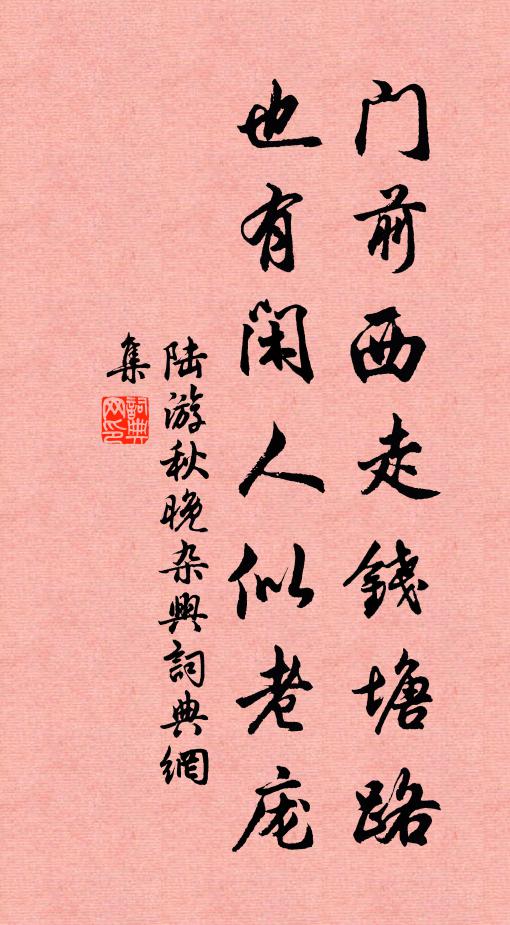 门前西走錢塘路
也有闲人似老庞
陆游秋晚杂興詞典網
集
詞典网印